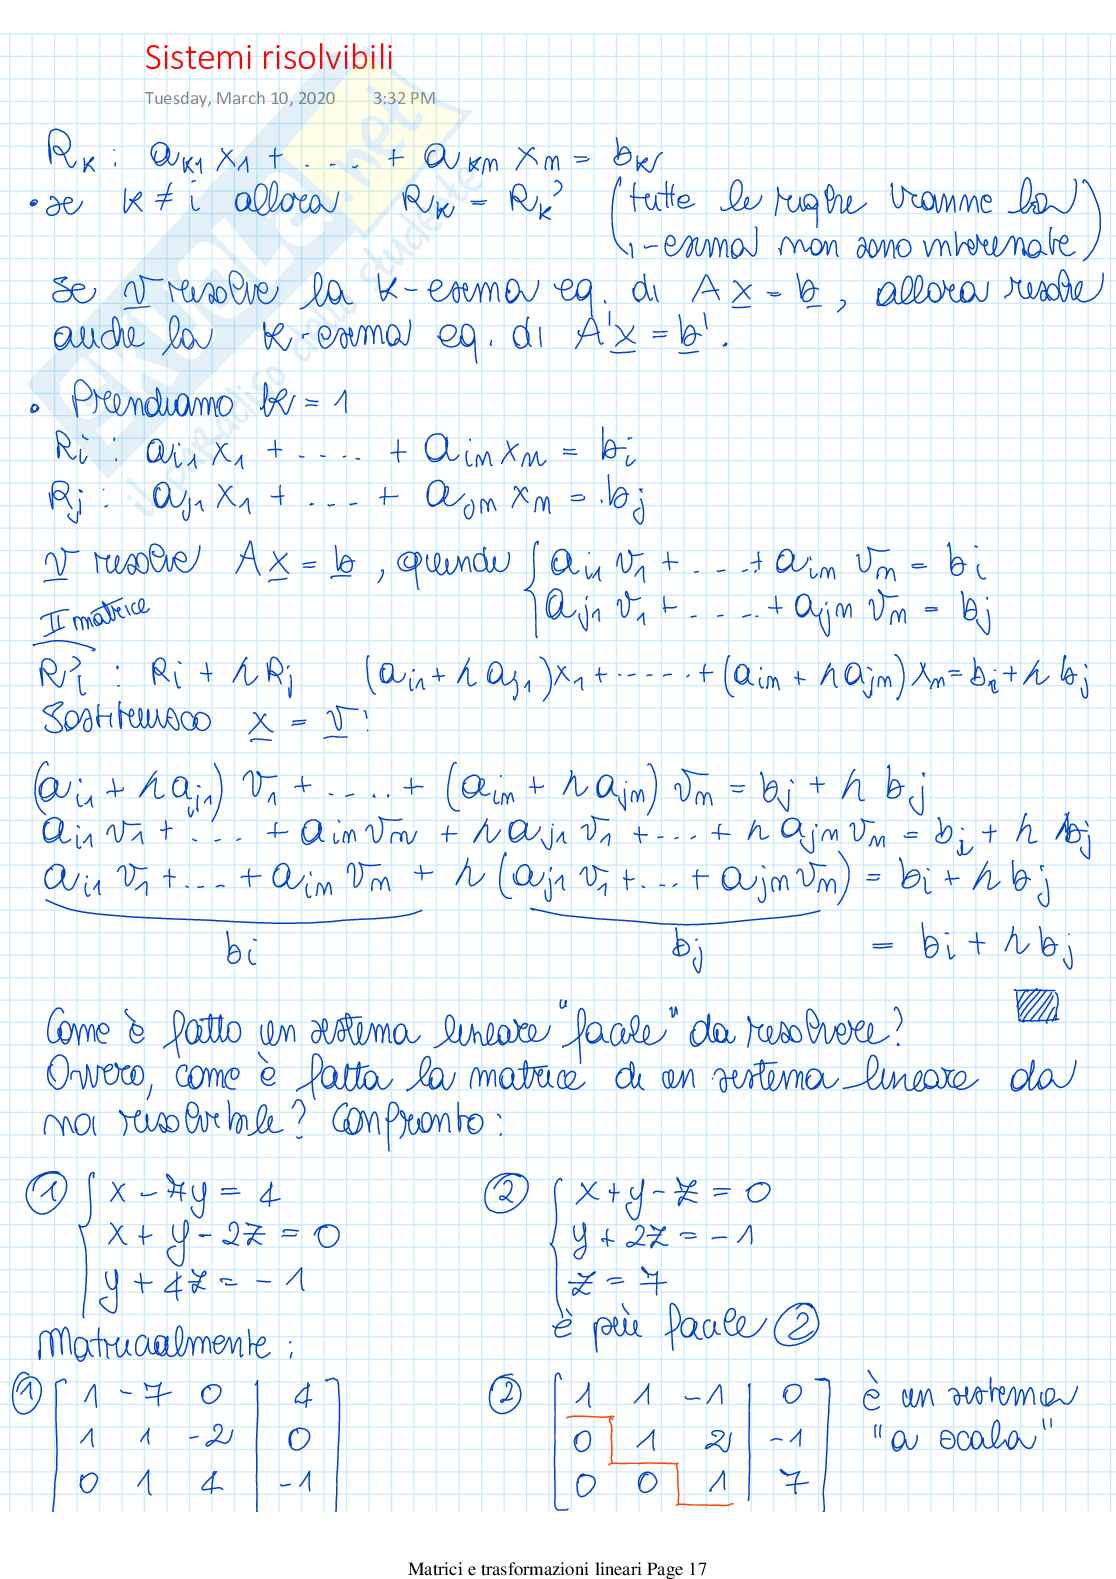 Sistemi risolvibili
Tuesday, March 10, 2020 3:32 PM
Rₖ : aₖ₁ x₁ + .... + aₖₙ xₙ = bₖ
• se k ≠ i allora Rₖ = Rₖ' (tutte le righe tranne la
i-esima non sono interessate)
Se v risolve la k-esima eq. di A x = b, allora risolve
anche la k-esima eq. di A'x = b'.
• Prendiamo k = 1
Rᵢ : aᵢ₁ x₁ + ..... + aᵢₙ xₙ = bᵢ
Rⱼ : aⱼ₁ x₁ + .... + aⱼₙ xₙ = bⱼ
v risolve A x = b , quindi { aᵢ₁ v₁ + ....+ aᵢₙ vₙ = bᵢ
aⱼ₁ v₁ + ..... + aⱼₙ vₙ = bⱼ
II matrice
Rᵢ' : Rᵢ + h Rⱼ (aᵢ₁ + h aⱼ₁)x₁ + ...... + (aᵢₙ + h aⱼₙ) xₙ = bᵢ + h bⱼ
Sostituisco x = v :
(aᵢ₁ + h aⱼ₁) v₁ + ..... + (aᵢₙ + h aⱼₙ) vₙ = bⱼ + h bⱼ
aᵢ₁ v₁ + .... + aᵢₙ vₙ + h aⱼ₁ v₁ + ... + h aⱼₙ vₙ = bᵢ + h bⱼ
aᵢ₁ v₁ + ... + aᵢₙ vₙ + h (aⱼ₁ v₁ + ... + aⱼₙ vₙ) = bᵢ + h bⱼ
bᵢ bⱼ = bᵢ + h bⱼ
Come è fatto un sistema lineare "facile" da risolvere?
Ovvero, come è fatta la matrice di un sistema lineare da
noi risolvibile? Confronto:
① { x - 7y = 4 ② { x + y - z = 0
x + y - 2z = 0 y + 2z = -1
y + 4z = -1 z = 7
è più facile ②
Matricialmente :
① [ 1 -7 0 | 4 ] ② [ 1 1 -1 | 0 ] è un sistema
1 1 -2 | 0 0 1 2 | -1 "a scala"
0 1 4 | -1 0 0 1 | 7
Matrici e trasformazioni lineari Page 17